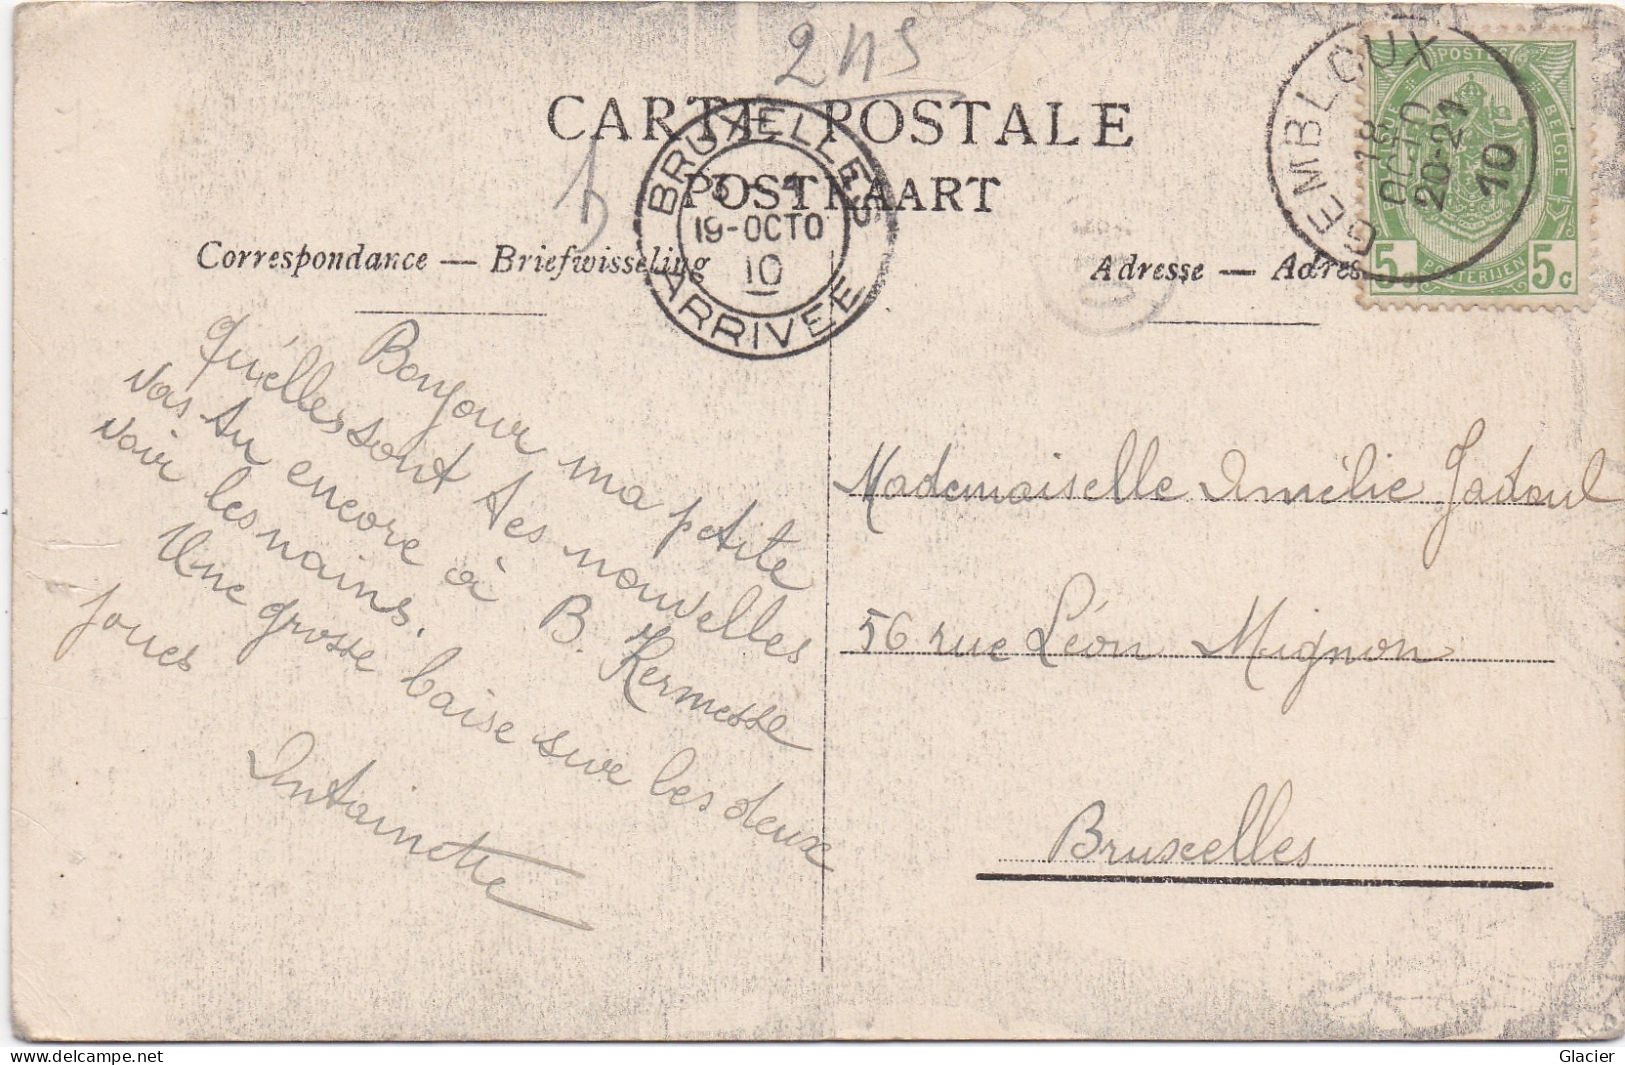 2 115
CARTE POSTALE
POSTKAART
Correspondance — Briefwisseling
Adresse — Adres
BRUXELLES
19-OCTO
10
ARRIVÉE
GEMBLOUX
18
OCTO
20-21
10
POSTES
BELGIQUE
BELGIE
POSTERIJEN
5c 5c
Bonjour ma petite
Qu'elles sont tes nouvelles
Vas tu encore à B. Kermesse
voir les nains.
Une grosse baise sur les deux
joues
Antoinette
Mademoiselle Amélie Jadoul
56 rue Léon Mignon
Bruxelles
www.delcampe.net
Glacier